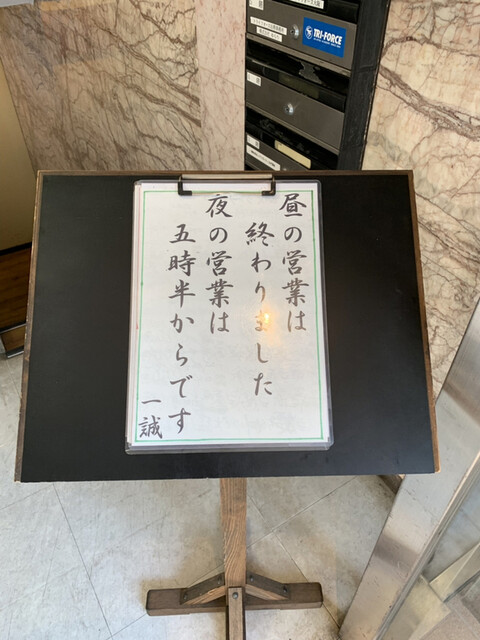 昼の営業は
終わりました
夜の営業は
五時半からです
一誠
TRI-FORCE